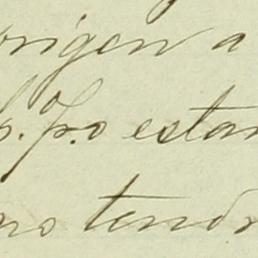 origen a
p.o estan
no tendr